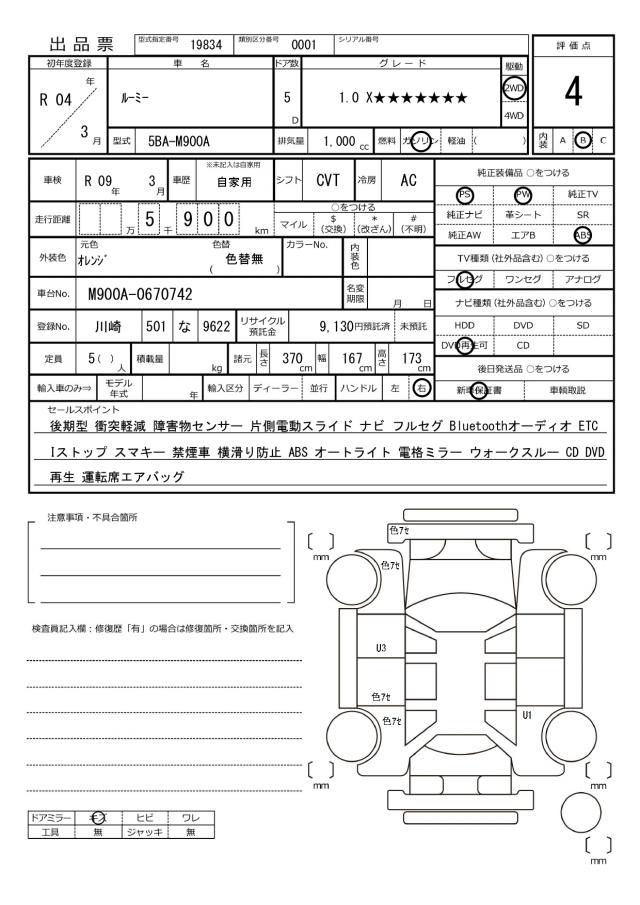 出品票 型式指定番号 19834 類別区分番号 0001 シリアル番号
評価点
4
内装 A B C
初年度登録 車名 ドア数 グレード 駆動
R 04 年 3 月
ルーミー 5 D 1.0 X★★★★★★★ 2WD
4WD
型式 5BA-M900A 排気量 1,000 cc 燃料 ガソリン 軽油 ( )
車検 R 09 年 3 月 車歴 ※未記入は自家用 自家用 シフト CVT 冷房 AC
走行距離 万 5 千 9 0 0 km
○をつける
マイル $ (交換) * (改ざん) # (不明)
外装色 元色 オレンジ 色替 ( 色替無 ) カラーNo. 内装色
車台No. M900A-0670742 名変期限 月 日
登録No. 川崎 501 な 9622 リサイクル預託金 9,130円預託済 未預託
定員 5( ) 人 積載量 kg 諸元 長さ 370 cm 幅 167 cm 高さ 173 cm
輸入車のみ⇒ モデル年式 年 輸入区分 ディーラー 並行 ハンドル 左 右
純正装備品 ○をつける
PS PW 純正TV
純正ナビ 革シート SR
純正AW エアB ABS
TV種類(社外品含む)○をつける
フルセグ ワンセグ アナログ
ナビ種類(社外品含む)○をつける
HDD DVD SD
DVD再生可 CD
後日発送品 ○をつける
新車保証書 車輌取説
セールスポイント
後期型 衝突軽減 障害物センサー 片側電動スライド ナビ フルセグ Bluetoothオーディオ ETC
Iストップ スマキー 禁煙車 横滑り防止 ABS オートライト 電格ミラー ウォークスルー CD DVD
再生 運転席エアバッグ
注意事項・不具合箇所
検査員記入欄：修復歴「有」の場合は修復箇所・交換箇所を記入
色アセ
〔 〕 mm
〔 〕 mm
色アセ
U3
色アセ
色アセ
U1
〔 〕 mm
〔 〕 mm
〔 〕 mm
ドアミラー キズ ヒビ ワレ
工具 無 ジャッキ 無